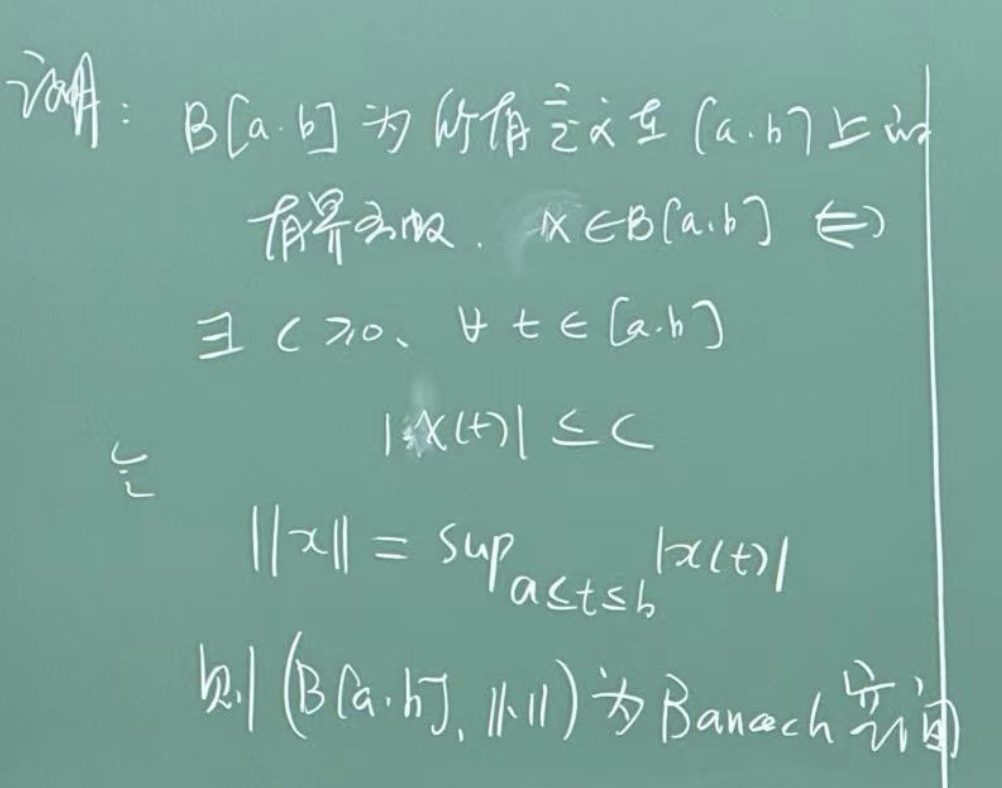 证明: B[a.b] 为所有定义在[a.b]上的
有界函数. x∈B[a.b] ⇔
∃ C≥0、∀ t∈[a.b]
|x(t)| ≤ C
定
||x|| = sup_{a≤t≤b} |x(t)|
则 (B[a.b], ||·||) 为Banach空间